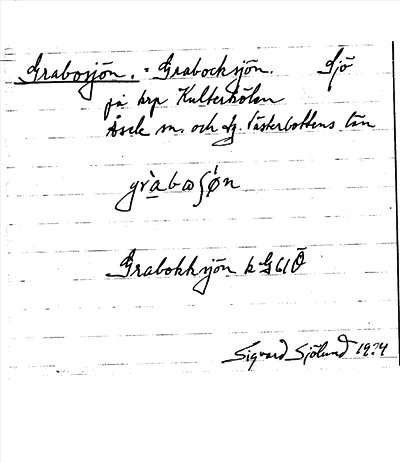 Grabosjön. = Grabocksjön. Sjö
på krp Kulterhölen
Åsele sn. och lg. Västerbottens län
gràbωʃø̀n
Grabokksjön k G61Ö
Sigvard Sjölund 19?4